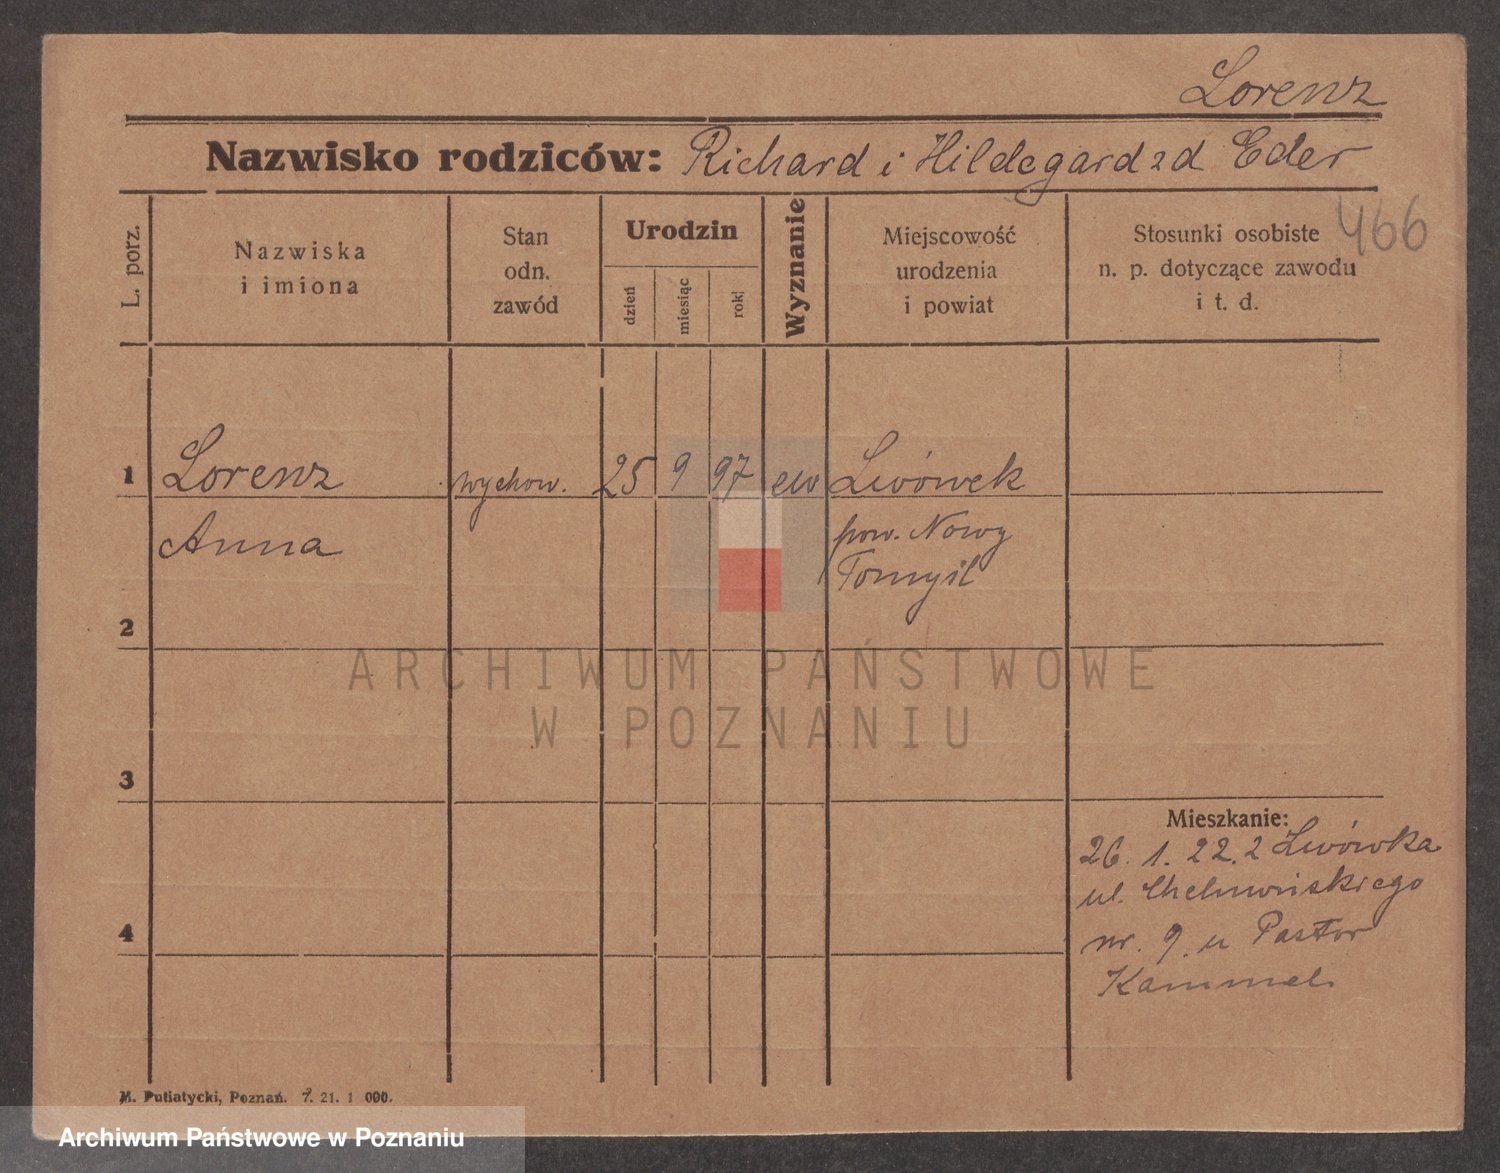 Lorenz
Nazwisko rodziców: Richard i Hildegard zd Eder
466
L. porz.
Nazwiska
i imiona
Stan
odn.
zawód
Urodzin
dzień
miesiąc
rok
Wyznanie
Miejscowość
urodzenia
i powiat
Stosunki osobiste
n. p. dotyczące zawodu
i t. d.
1 Lorenz wychow. 25 9 97 ew Lwówek
Anna pow. Nowy
Tomyśl
2
ARCHIWUM PAŃSTWOWE
W POZNANIU
3
Mieszkanie:
26. 1. 22. z Lwówka
ul.
4
nr. 9. u Pastor
Kammel.
M. Putiatycki, Poznań. 7. 21. 1 000.
Archiwum Państwowe w Poznaniu